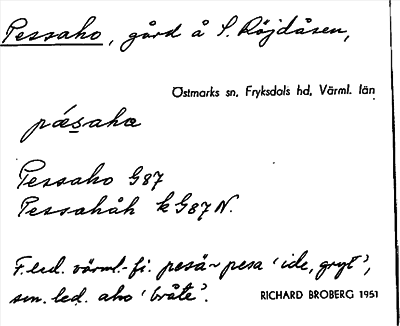 Pessaho, gård å S. Röjdåsen,
Östmarks sn, Fryksdals hd, Värml. län
pǽsaha
Pessaho G87
Pessahåh k G87 N.
F. led. värml.-fi. pesä ~ pesa 'ide, gryt',
sen. led. aho 'bråte'.
RICHARD BROBERG 1951